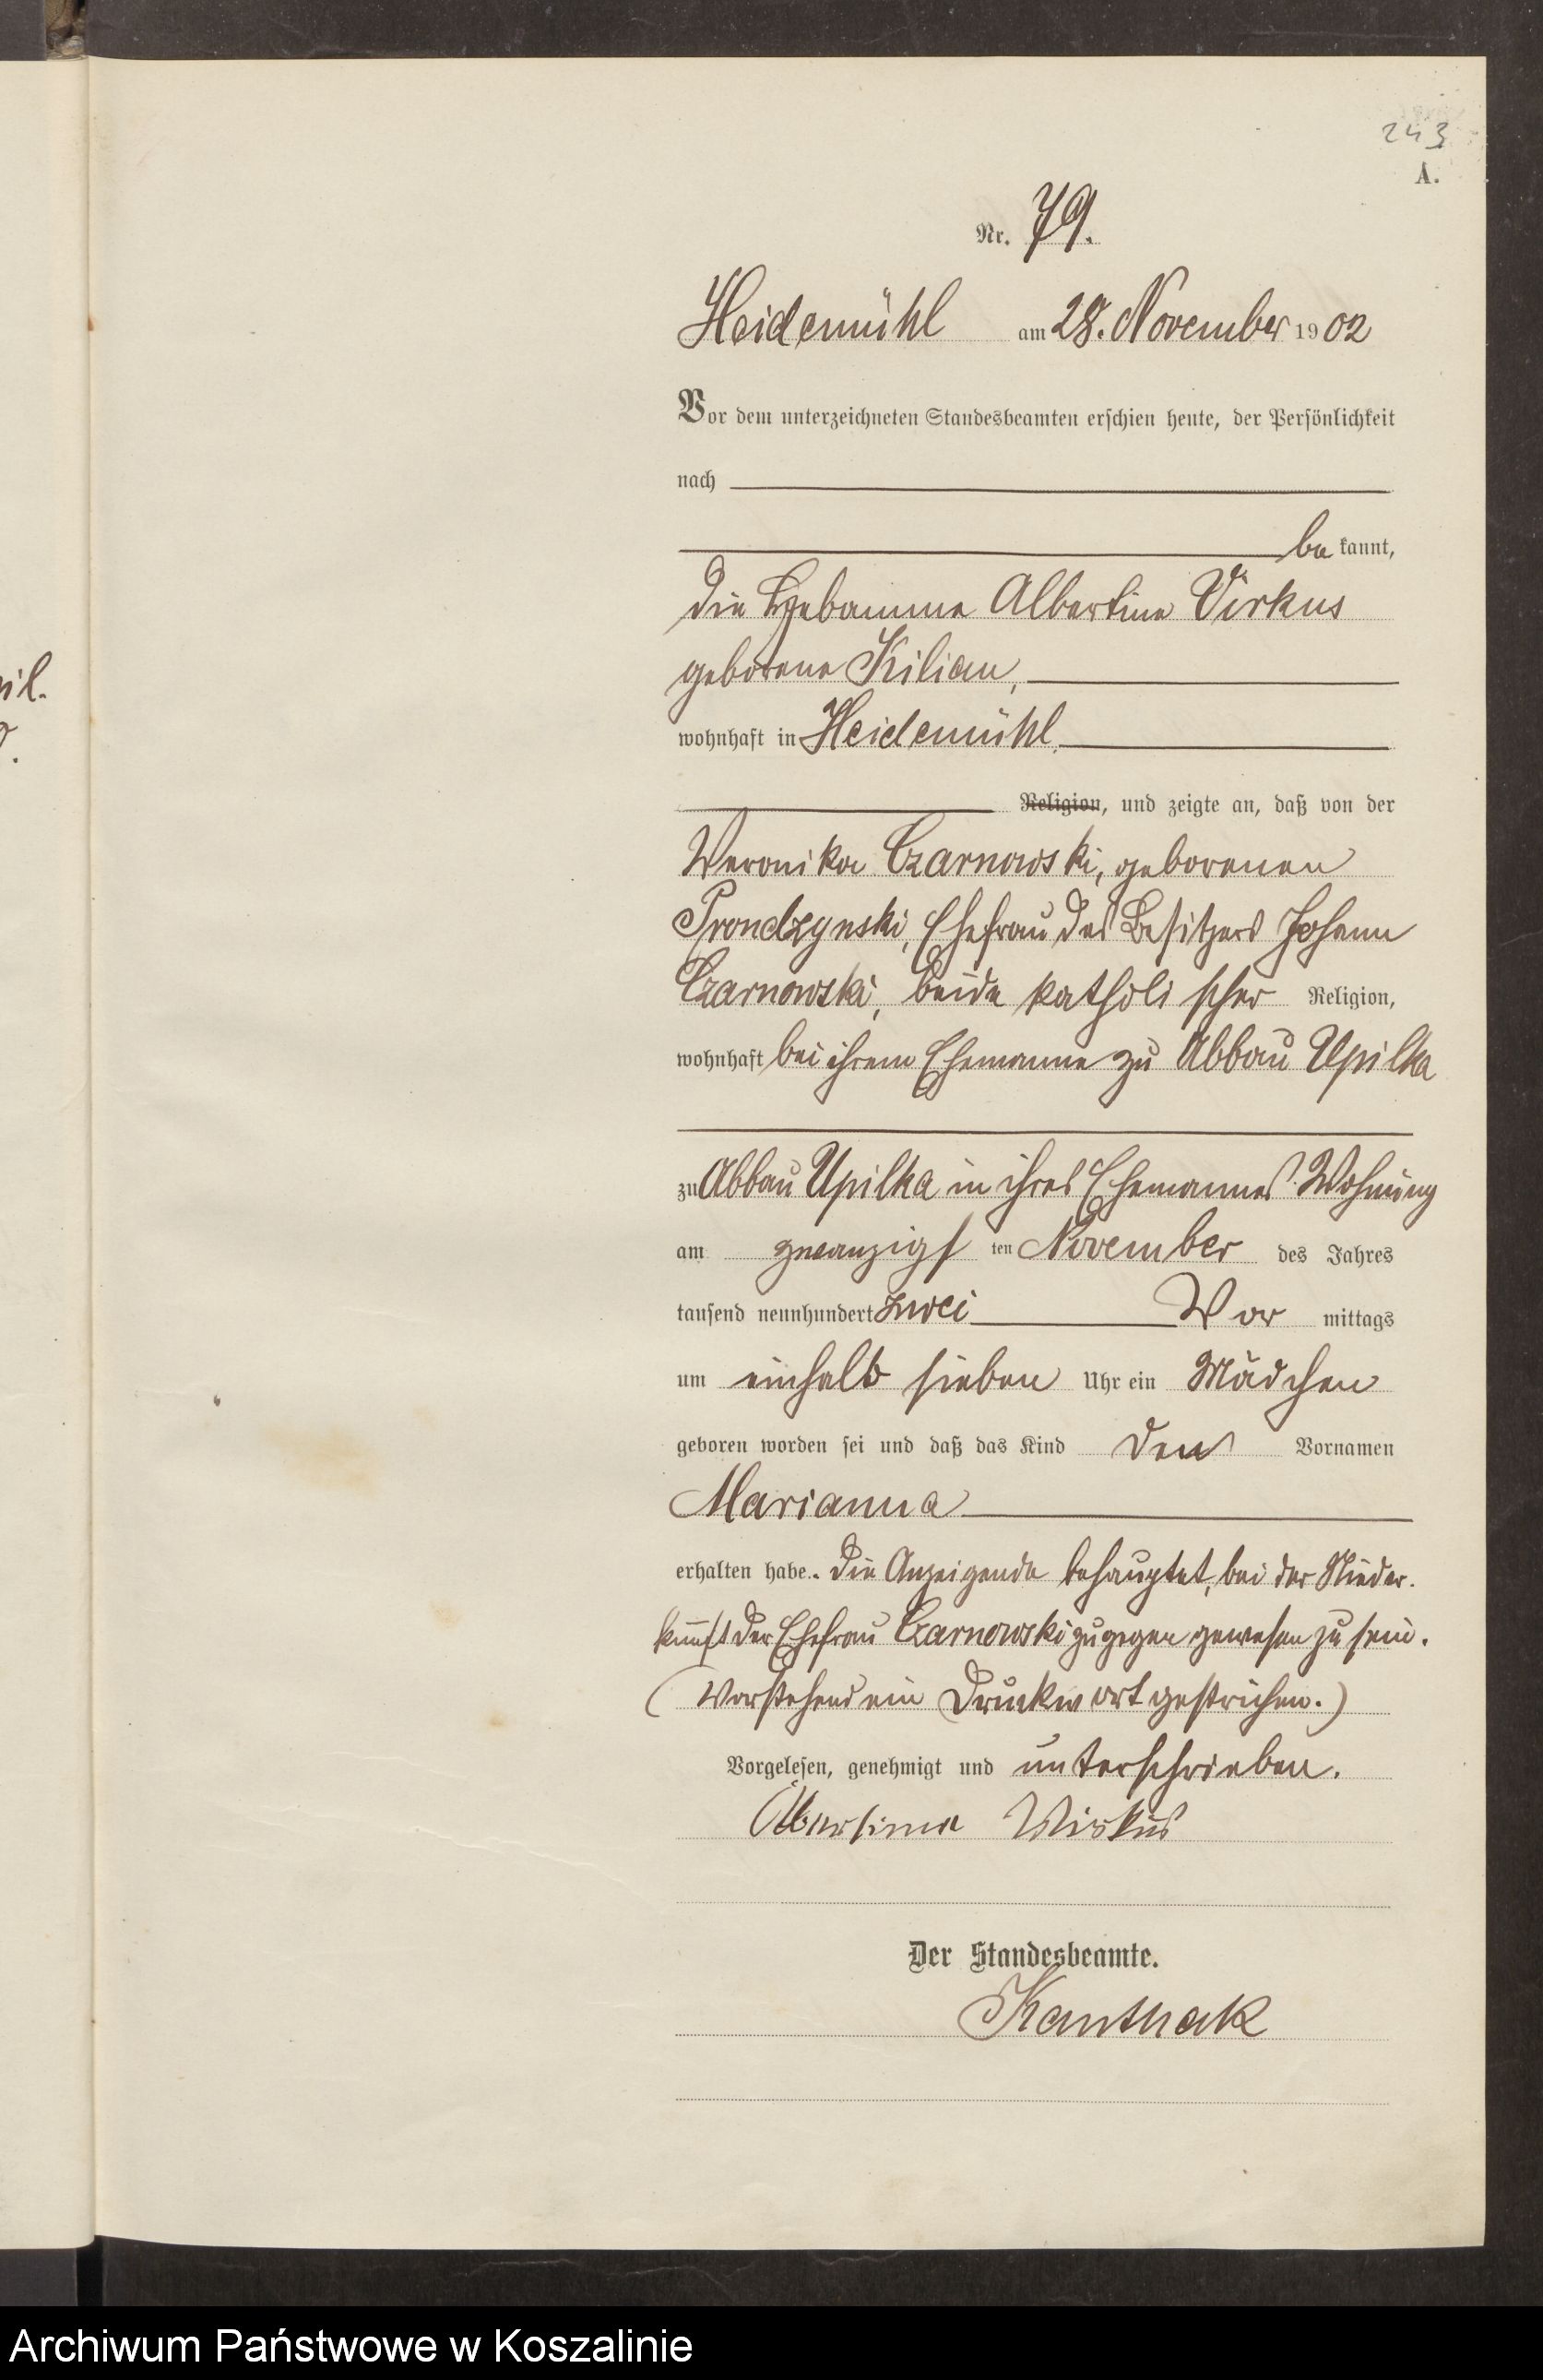 243
A.
Nr. 79.
Heidemühl am 28. November 1902
Vor dem unterzeichneten Standesbeamten erschien heute, der Persönlichkeit
nach
be kannt,
die Hebamme Albertine Virkus
geborene Kilian,
wohnhaft in Heidemühl
Religion, und zeigte an, daß von der
Weronika Czarnowski, geborenen
Prondzynski, Ehefrau des Besitzers Johann
Czarnowski, beide katholischer Religion,
wohnhaft bei ihrem Ehemanne zu Abbau Upilka
zu Abbau Upilka in ihres Ehemannes Wohnung
am zwanzigsten November des Jahres
tausend neunhundert zwei Vor mittags
um einhalb sieben Uhr ein Mädchen
geboren worden sei und daß das Kind den Vornamen
Marianna
erhalten habe. Die Anzeigende behauptet, bei der Nieder-
kunft der Ehefrau Czarnowski zugegen gewesen zu sein.
(Vorstehend ein Druckwort gestrichen.)
Vorgelesen, genehmigt und unterschrieben.
Wirkus
Der Standesbeamte.
Kanthak
il.
Archiwum Państwowe w Koszalinie